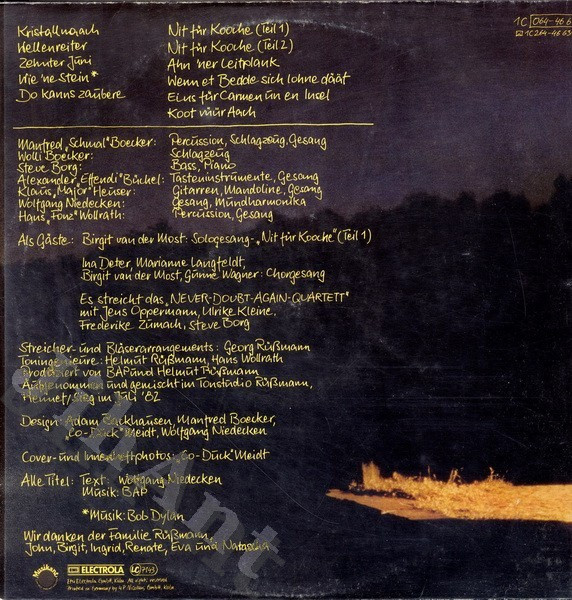 1C 064-46 6
1C 264-46 63
Kristallnaach
Wellenreiter
Zehnter Juni
Wie 'ne Stein*
Do kanns zaubere
Nit für Kooche (Teil 1)
Nit für Kooche (Teil 2)
Ahn 'ner Leitplank
Wenn et Bedde sich lohne däät
Eins für Carmen un en Insel
Koot vüür Aach
Manfred „Schmal" Boecker: Percussion, Schlagzeug, Gesang
Wolli Boecker: Schlagzeug
Steve Borg: Bass, Piano
Alexander „Effendi" Büchel: Tasteninstrumente, Gesang
Klaus „Major" Heuser: Gitarren, Mandoline, Gesang
Wolfgang Niedecken: Gesang, Mundharmonika
Hans „Fonz" Wollrath: Percussion, Gesang
Als Gäste: Birgit van der Most: Sologesang - „Nit für Kooche" (Teil 1)
Ina Deter, Marianne Langfeldt,
Birgit van der Most, Günne Wagner: Chorgesang
Es streicht das „NEVER-DOUBT-AGAIN-QUARTETT"
mit Jens Oppermann, Ulrike Kleine,
Frederike Zumach, Steve Borg
Streicher- und Bläserarrangements: Georg Rüßmann
Toningenieure: Helmut Rüßmann, Hans Wollrath
Produziert von BAP und Helmut Rüßmann
Aufgenommen und gemischt im Tonstudio Rüßmann,
Hennef/Sieg im Juli '82
Design: Adam Backhausen, Manfred Boecker,
„Co-Dück" Meidt, Wolfgang Niedecken
Cover- und Innenheftphotos: „Co-Dück" Meidt
Alle Titel: Text: Wolfgang Niedecken
Musik: BAP
*Musik: Bob Dylan
Wir danken der Familie Rüßmann,
John, Birgit, Ingrid, Renate, Eva und Natascha
Musikant
EMI ELECTROLA LC 7143
EMI Electrola GmbH, Köln. All rights reserved
Printed in Germany by